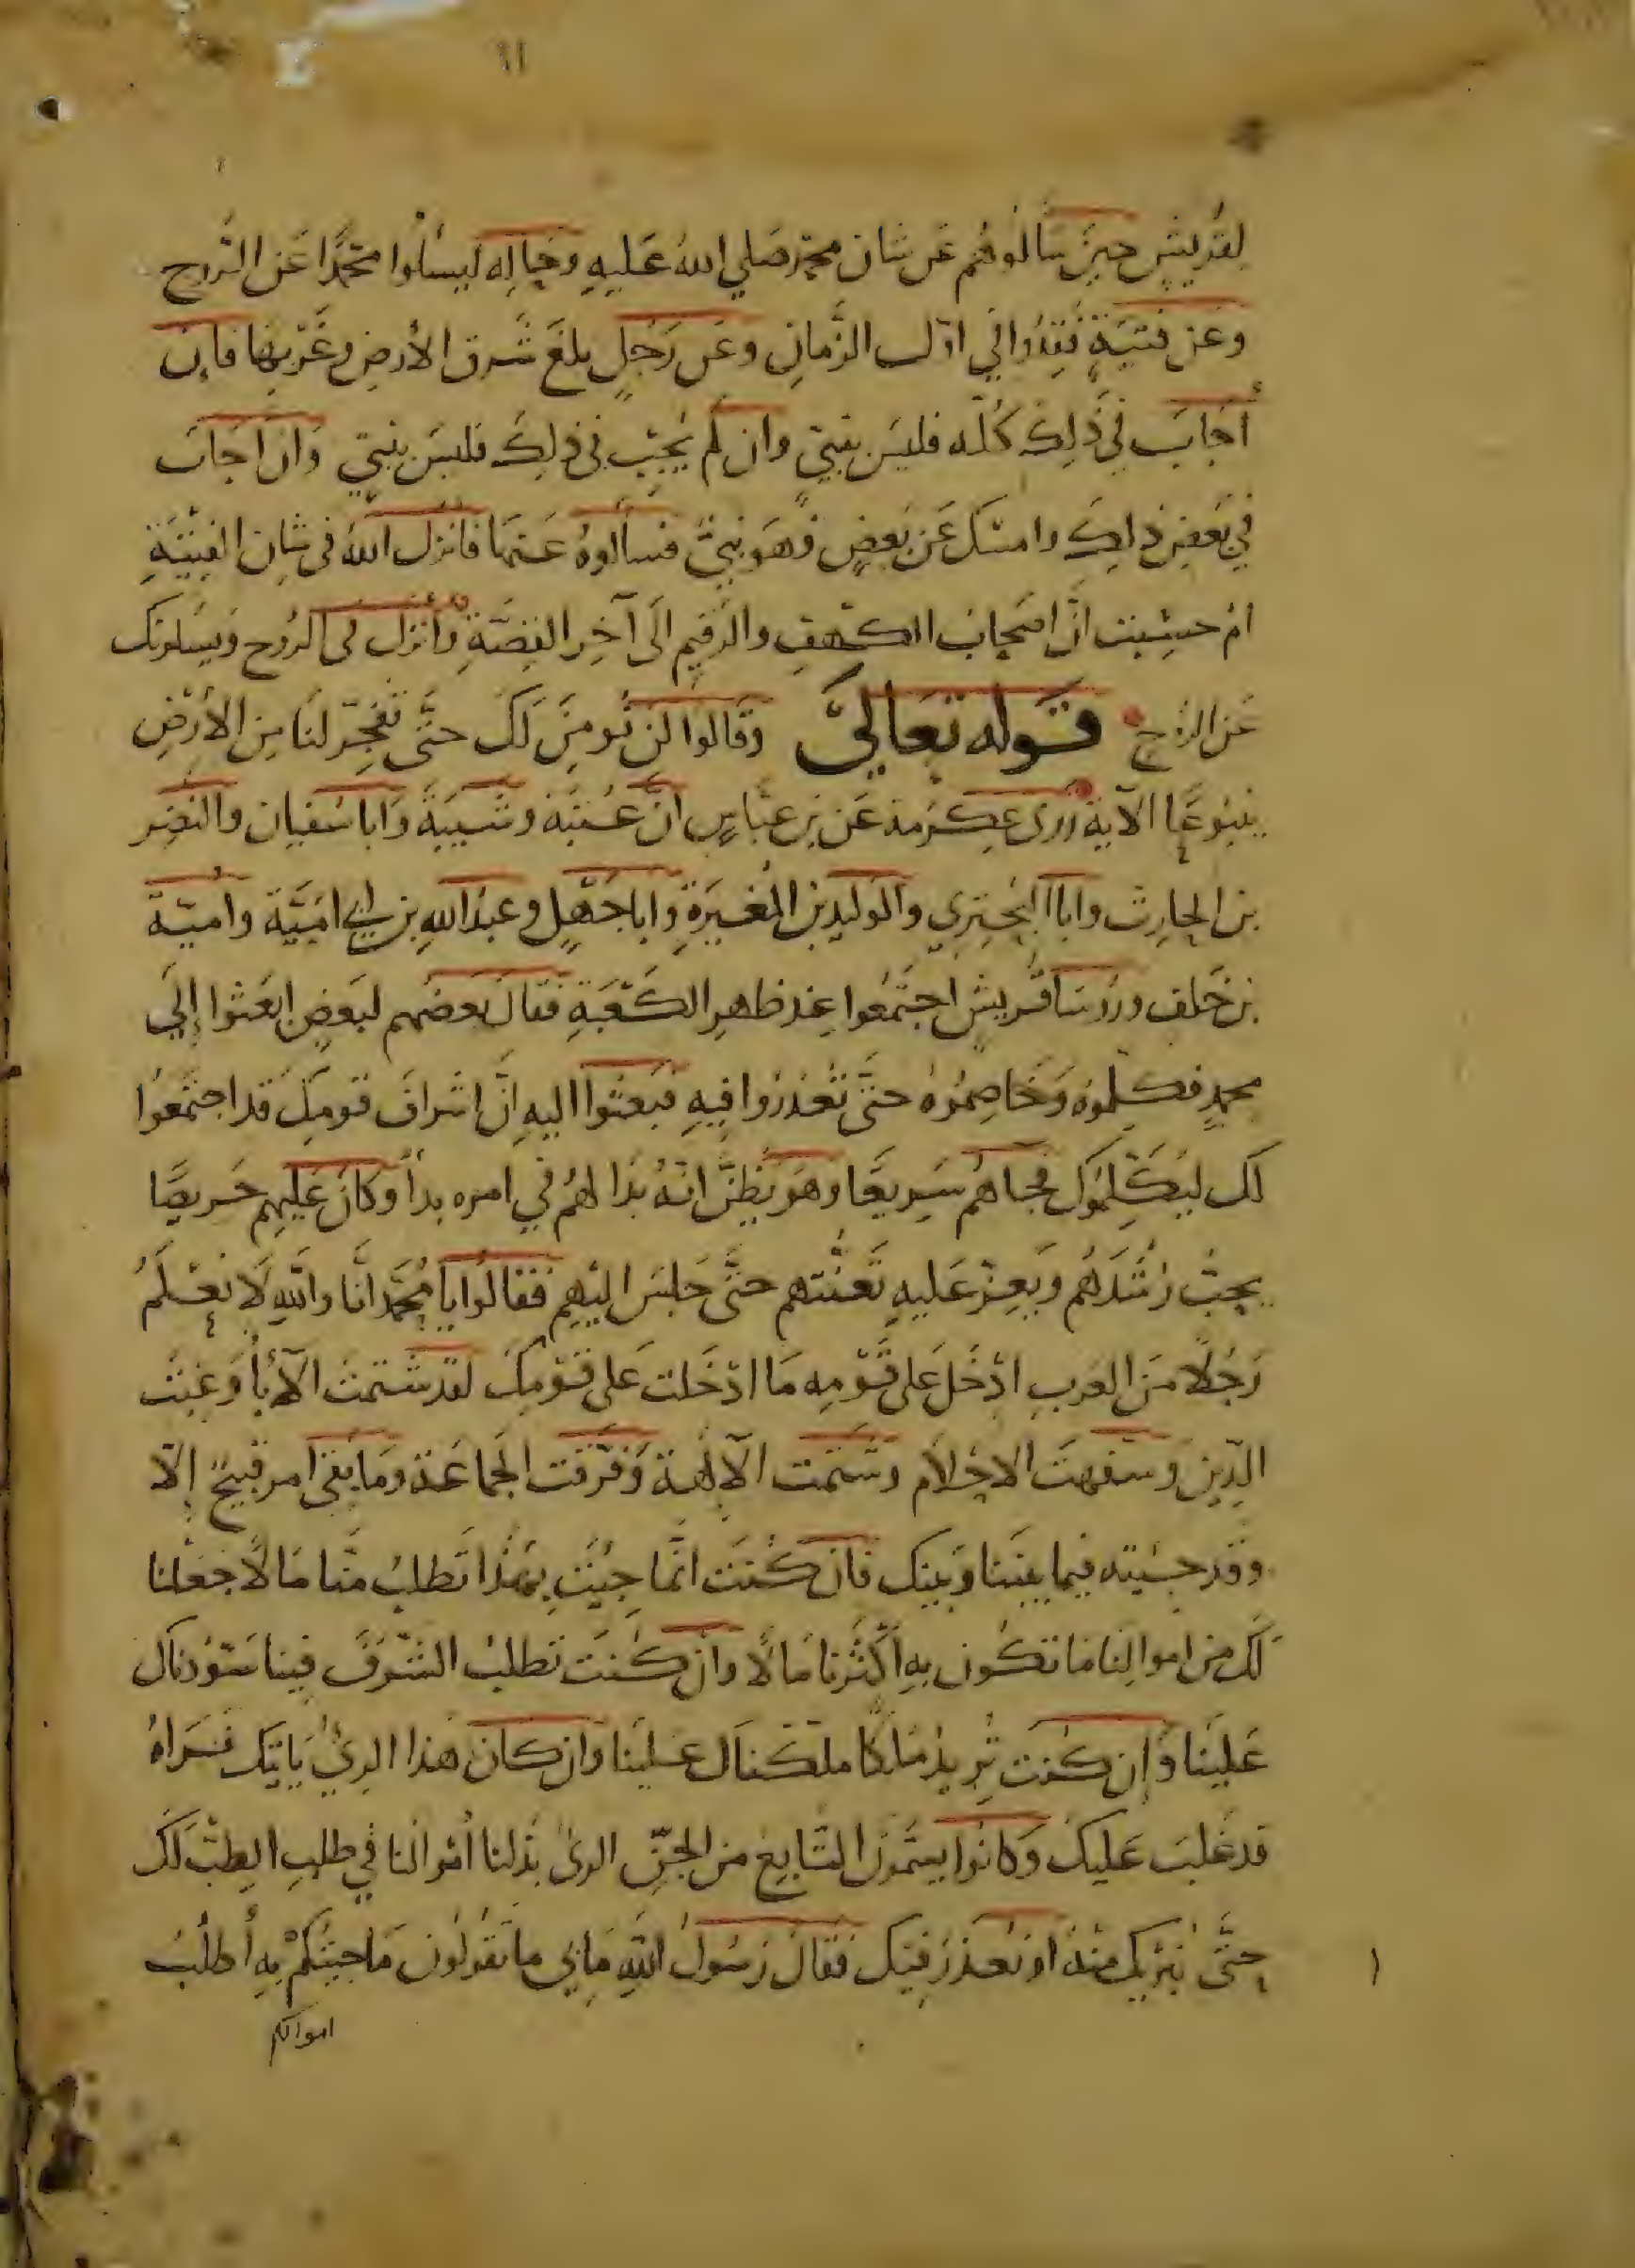 ١١
لِقُرَيشٍ حينَ سَألُوهُم عَن شان محمّد صَلي اللهُ عَليهِ وحَالِه ليسألُوا محمَّدًا عَن الرُّوح
وعَن فتيَةٍ فُقِدُوا في اوّل الزَّمانِ وعَن رَجُلٍ بلغَ شَرق الأرضِ وغَربهَا فاِن
أجَابَ في ذَلِكَ كُلّه فليسَ بنبيّ وان لَم يُجِبْ في ذلِكَ فليسَ بنبيّ وَان اجَابَ
في بَعضِ ذلِكَ وامسَكَ عَن بَعضٍ فهوَ نبيٌّ فسألوهُ عَنهَا فانزل اللهُ في شانِ الفِتيَةِ
ام حسِبت انَّ اصحاب الكهفِ والرقيم الَى آخِر القِصَّةِ وأنزل في الرُوح وَيسَلونك
عَن الرُّوح قَوله تعَالىَ وَقَالوا لَن نُومِنَ لَكَ حتَّى تفجّر لنَا مِن الأرْضِ
ينبُوعًا الآية رَوى عِكرمة عَن بن عبّاسٍ انَّ عُتبَة وشَيبَةَ وَاباسُفيان والنضر
بن الحارِث وابا البَختِري والوَليد بن المُغيرَةِ وَاباجَهلٍ وعبدَاللهِ بن ابي اميَّة واميّة
بن خَلف ورُوسَا قُريشٍ اجتَمعُوا عِند ظاهرِ الكَعبَةِ فقال بعضهم لبَعضٍ ابعَثوا إلَى
محمدٍ فكلِّموهُ وَخَاصِمُوهُ حتَّى تُعْذِرُوا فيهِ فبَعثُوا اليهِ اِنَّ اشرافَ قومِكَ قداجتَمعُوا
لَك ليُكَلِّمُوكَ فجاهُم سَريعًا وهَو يَظنُّ انّهُ بَدَا لهُم في امره بدأ وكانَ عَليهِم حَريصًا
يحبّ رُشْدَهُم وَيعِزّ عَليهِ تَعنُّتهم حتَّى جَلسَ اليْهِم فَقَالُوا يا مُحَمّد انّا واللهِ لَا نَعْلَمُ
رَجُلًا مِنَ العَربِ ادْخَلَ عَلى قَوْمِه مَا ادْخَلت عَلى قَوْمِكَ لقد شتمتَ الآبأ وَعِبْتَ
الدّينَ وسَفهتَ الاحْلاَم وشتَمت الآلهة وَفَرَّقت الجَماعَة وَما بَقى امر قَبيحٌ إلّا
وقد جيته فيما بيننا وَبينك فان كُنتَ انّما جيتَ بهذا تَطلبُ منَّا مَالًا جَعَلنا
لَك من اموالِنا مَا تكُون بهِ أكْثَرنا مَالًا وانْ كُنتَ تَطلبُ الشّرَفَ فِينا سَوَّدناك
عَلينَا وَإن كنت تُريدُ مُلكًا ملّكناك علينا وان كان هَذا الذيُ يَاتيك تَراهُ
قد غَلبَ عَليك وَكانُوا يسَمّونَ التّابعَ من الجنِّ الذى بَذلنا أموالنا في طلبِ الطِبّ لَك
حتَّى نُبْريك منهُ أو نُعذَر فيك فَقَال رَسُولُ اللهِ مَابي ما تَقُولُون مَا جيتكُمْ بِه أطلُبُ
اموالكم
١